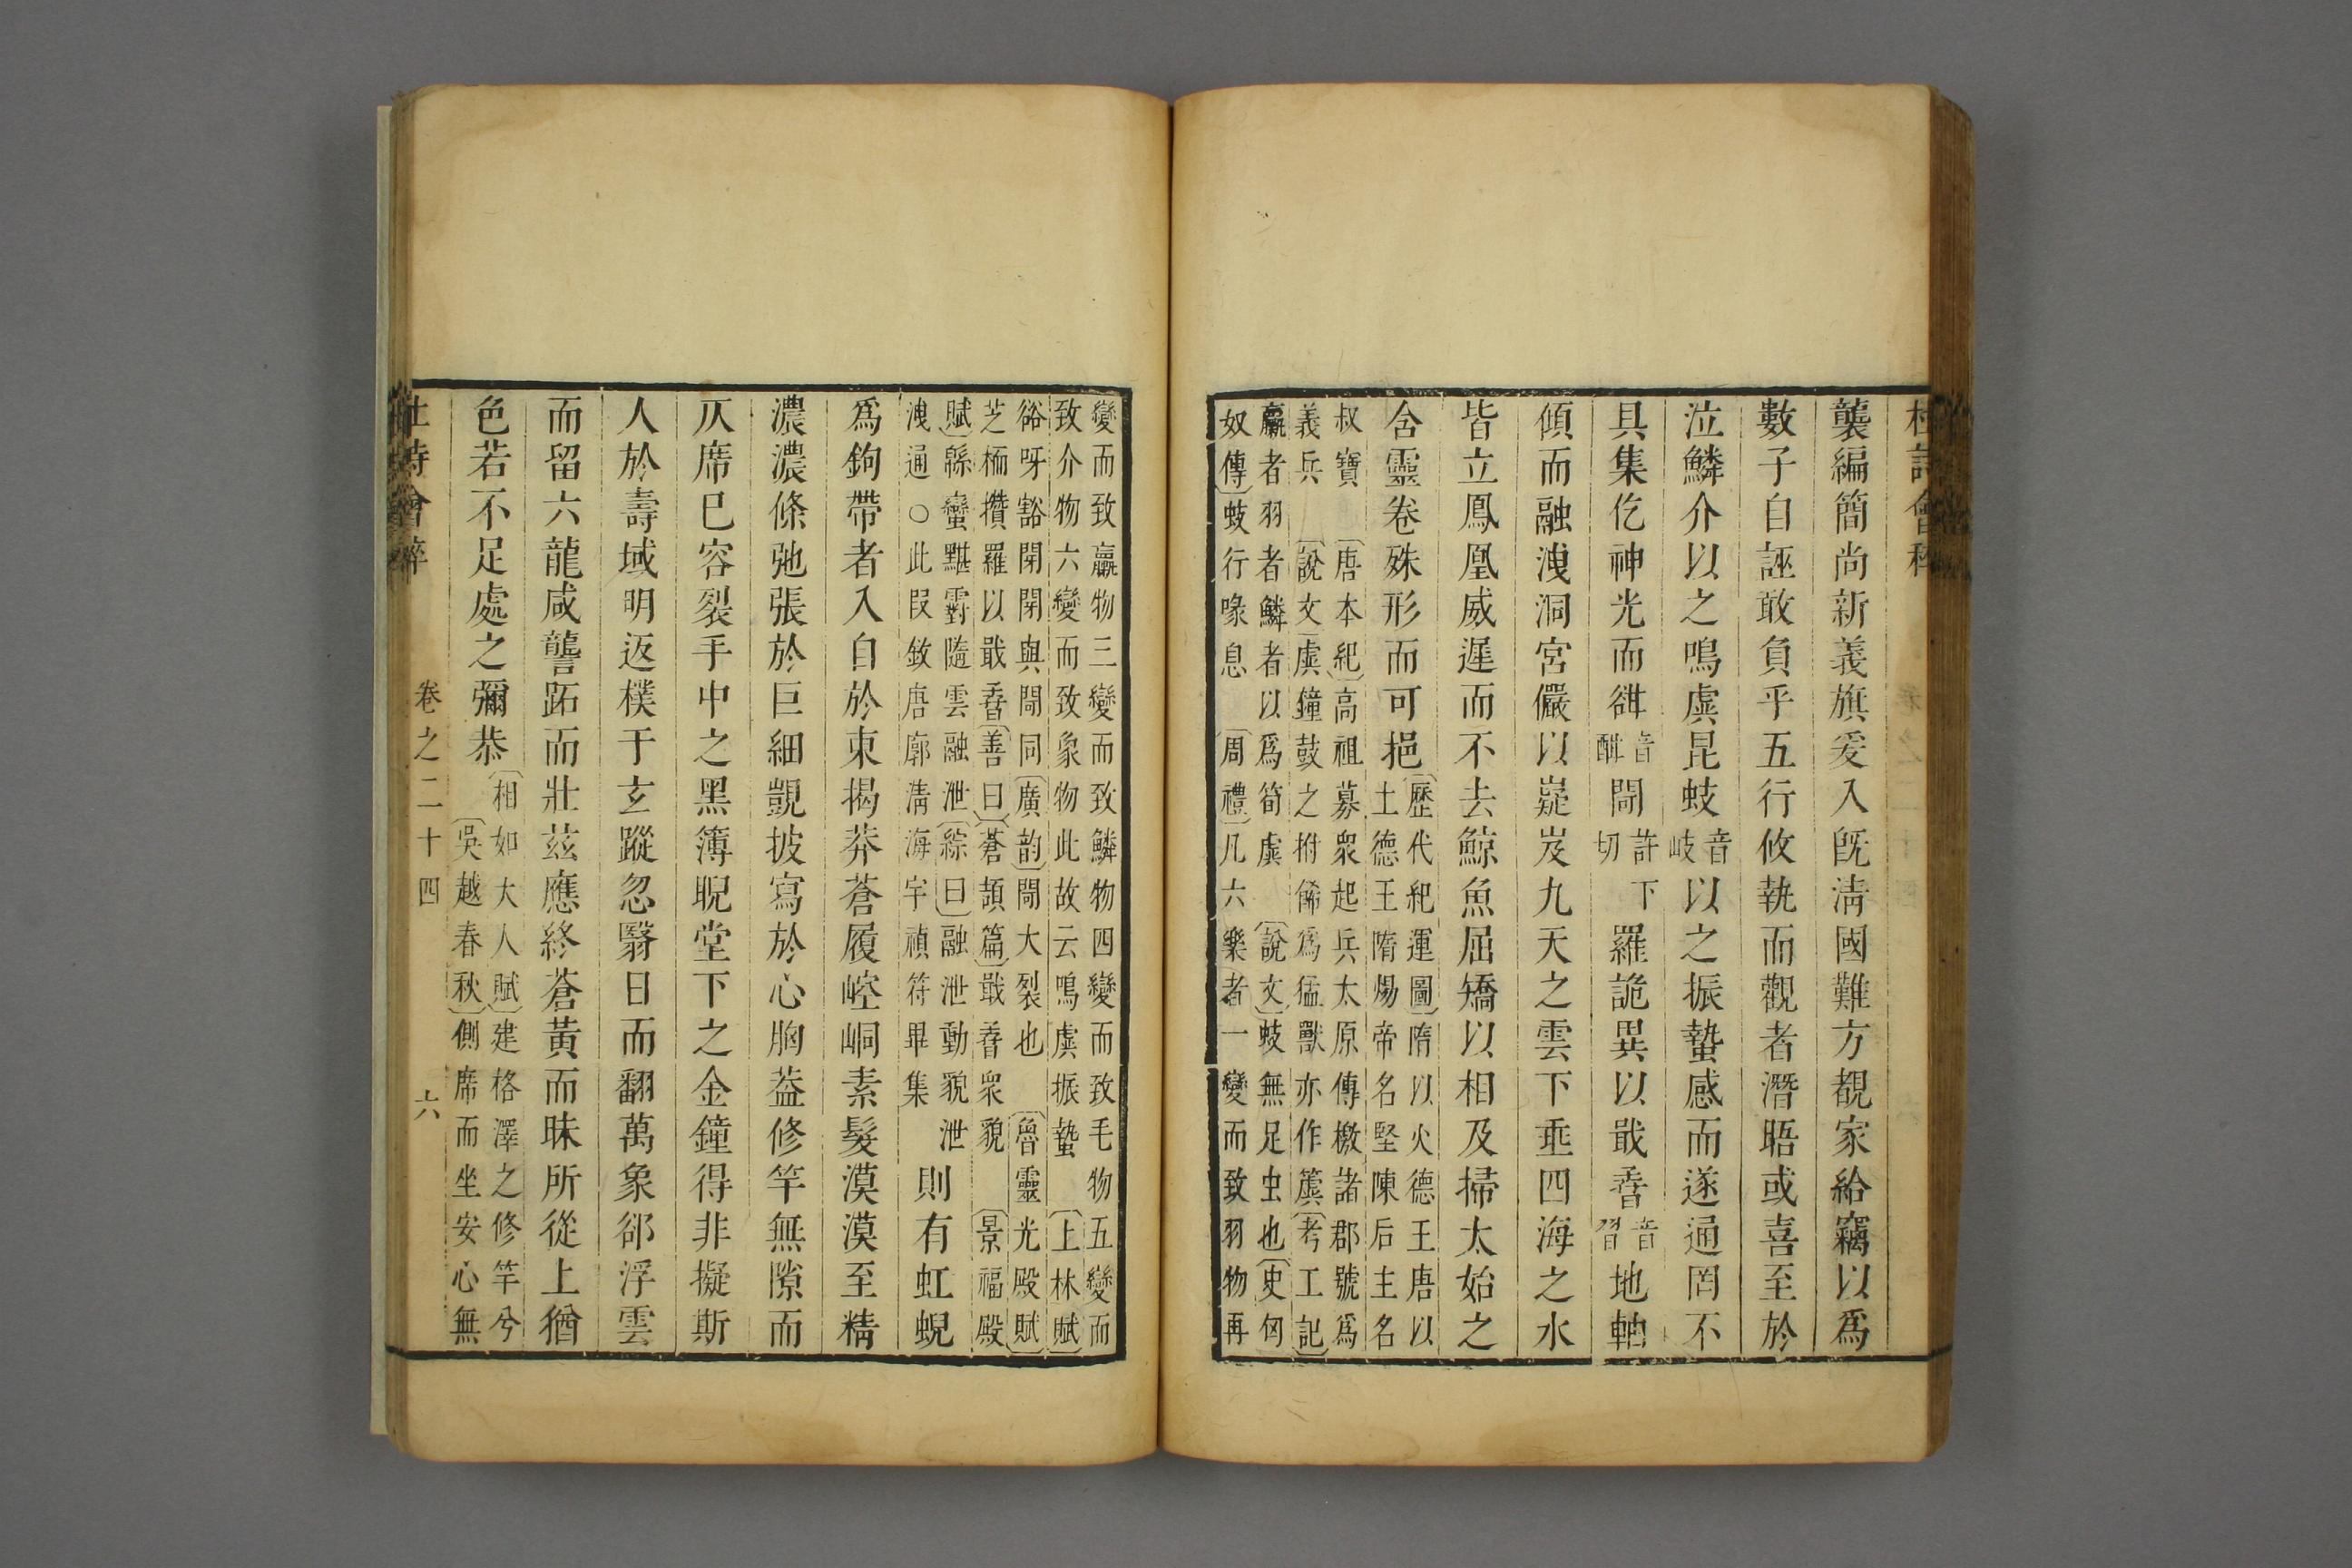 襲編簡尚新義旗爰入旣清國難方覩家給竊以爲
數子自誣敢負乎五行攸執而觀者潛晤或喜至於
泣鱗介以之鳴虡昆蚑音岐以之振蟄感而遂通罔不
具集仡神光而䜫音酣閜許下切羅詭異以戢孴音習地軸
傾而融洩洞宮儼以嶷岌九天之雲下垂四海之水
皆立鳳凰威遲而不去鯨魚屈矯以相及掃太始之
含靈卷殊形而可挹
歷代紀運圖隋以火德王唐以
土德王隋煬帝名堅陳后主名
叔寶唐本紀高祖募衆起兵太原傳檄諸郡號爲
義兵說文虡鐘鼓之柎飾爲猛獸亦作簴考工記
臝者羽者鱗者以爲筍虡說文蚑無足虫也史匈
奴傳蚑行喙息周禮凡六樂者一變而致羽物再
變而致臝物三變而致鱗物四變而致毛物五變而
致介物六變而致象物此故云鳴虡振蟄上林賦
谽呀豁閜閜與閜同廣韵閜大裂也魯靈光殿賦
芝栭攢羅以戢孴善曰蒼頡篇戢孴衆貌景福殿
賦緜蠻黮䨴隨雲融泄綜曰融泄動貌泄
洩通○此叚敘唐廓清海宇禎符畢集
則有虹蜺
爲鉤帶者入自於東揭莽蒼履崆峒素髮漠漠至精
濃濃條弛張於巨細覬披寫於心胸葢修竿無隙而
仄席巳容裂手中之黑簿睨堂下之金鐘得非擬斯
人於壽域明返樸于玄蹤忽翳日而翻萬象郤浮雲
而留六龍咸讋跖而壯茲應終蒼黃而昧所從上猶
色若不足處之彌恭
相如大人賦建格澤之修竿兮
吳越春秋側席而坐安心無
杜詩會稡 卷之二十四 六